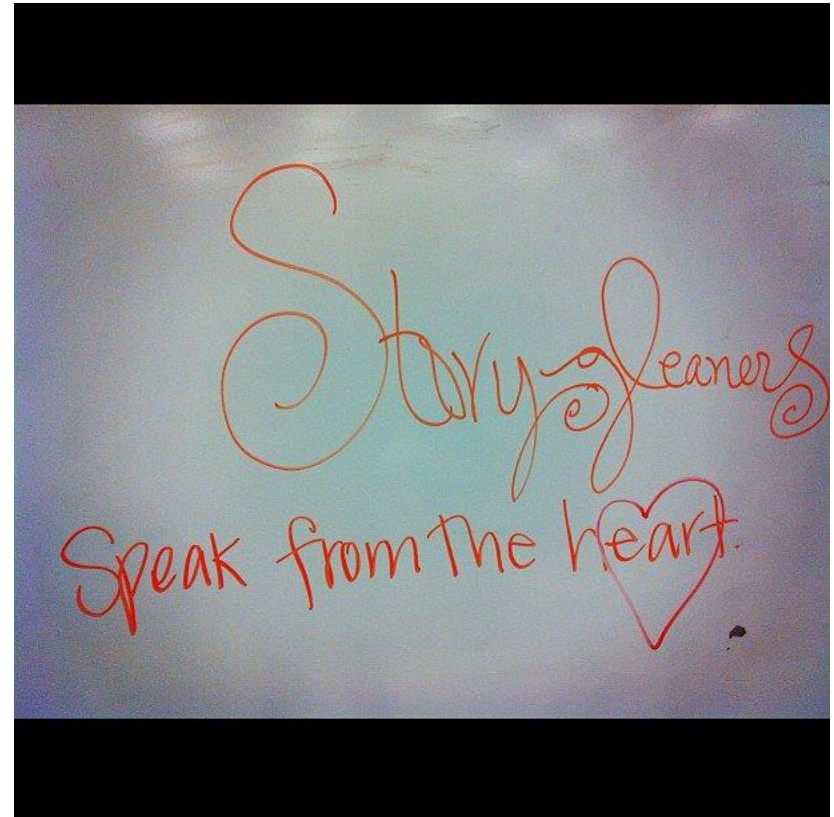 Storygleaners
Speak from the heart.